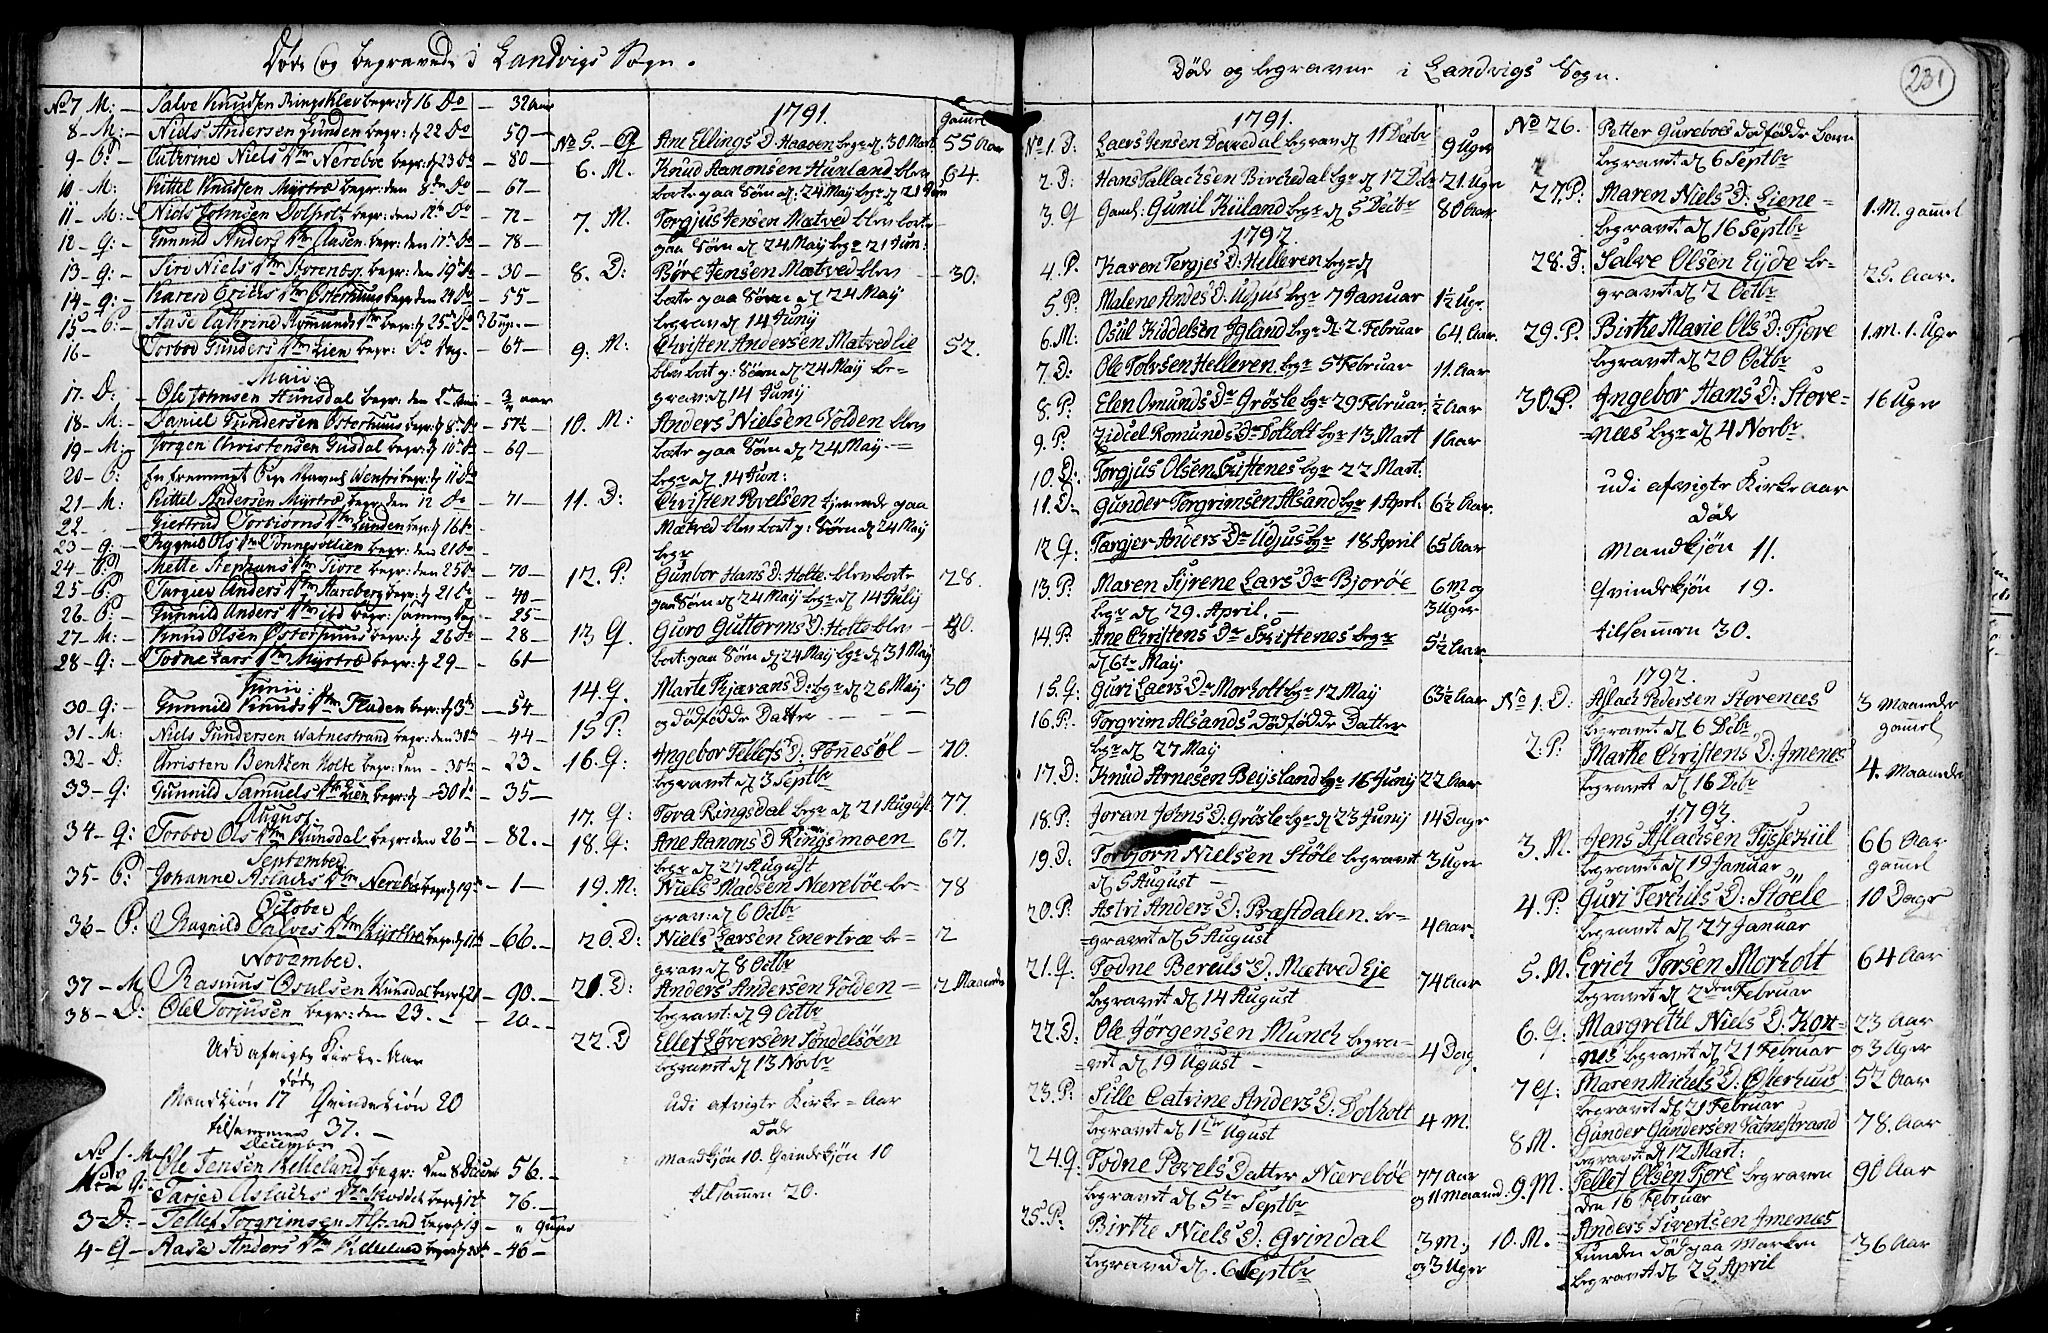 Døde og begravede i Landvigs Sogn.
No 7 M: Salve Knudsen Ringskler begr: d 16 Do 32 aar
8 - M: Niels Andersen Lunden begr: d 22 Do - 59
9 - P: Cathrine Niels Dtr Nereboe begr: d 23 Do - 80
10 - M: Kittel Knudsen Myrtræ begr: den 8de Do - 67
11 - M: Niels Johnsen Dolholt begr: den 12te Do - 72
12 - Q: Gunnild Anders Dtr Aasen begr: den 17de Do - 78
13 - Q: Siro Niels Dtr begr: den 19de Do - 30
14 - Q: Karen Erichs Dtr Østerhuus begr: den 24 Do - 55
15 - P: Aase Cathrine Romunds Dtr begr: d 25de Do 36 ug:
16 - Torbor Gunders Dtr Lien begr: Do Dag - 64
Maii:
17. D: Ole Johnsen Hunsdal begr: den aar
18 - M: Daniel Gundersen Østerhuus begr: d 8de Do - 57½
19 - M: Jørgen Christensen Guddal begr: d 10de Do - 69
20 - P: En fremmet begr: d 11 Do
21 - M: Kittel Andersen Myrtræ begr: den 12 Do - 71
22 - Giertrud Torbiørns Dtr Lunden begr: d 16 Do
23 - Q: Ragnild Ols Dtr begr: den 21 Do
24 - P: Mette Stephans Dtr Fiore begr: den 25 Do - 70
25 - P: Targier Anders Dtr begr: d 21 Do - 40
26 - P: Gunnild Anders Dtr begr: samme dag - 25
27 - M: Knud Olsen Østerhuus begr: d 26 Do - 28
28 - Q: Todne Lars Dtr Myrtræ begr: d 29 - 61
Junii:
30 - Q: Gunnild Knuds Dtr Fladen begr: d 3de - 54
31 - M: Niels Gundersen Watnestrand begr: den 30te - 44
32 - D: Christen Bentsen Holte begr: den 30te - 23
33 - Q: Gunnild Samuels Dtr Lien begr: d 30 Do - 35
August.
34 - Q: Torboe Ols Dtr Hunsdal begr: den 26de - 82.
September
35 - P: Johanne Aslachs Dtr Nereboe begr: d 19de - 1
October
36 - P: Ragnild Salves Dtr Myrtræ begr: d 11te - 66.
November.
37 - M Rasmus Osulsen Hunsdal begr: d 21 - 90.
38 - D: Ole Torjusen begr: den 23. - 20.
Udi afvigte Kirke-Aar
døde
Mandkiøn 17 Qvindekiøn 20
tilsammen 37.
December
No 1. M Ole Jensen Kelleland begr: den 8 Decemb 56.
No 2 Q: Tarjer Aslachs Dtr begr: d 12te - 76.
3 - D: Tellef Torgrimsen Alsand begr: d 19 - 9 uger
4 - Q - Aase Anders Dtr Kelleland begr: d 30te - 46
1791. gammel
No 5. Q Ane Ellings D: Haaven begr d 30 Mart 55 Aar
6. M. Knud Aanonsen Hurland blev 64.
borte paa Søen d: 24 May begr d 21 Jun
7. M: Torgjus Jensen Mætved blev borte
paa Søen d 24 May begr 21 Jun:
8. D: Børe Jensen Mætved blev 30.
borte paa Søen d 24 May
begrav: d 14 Junij
9. M: Christen Andersen Mætved Eie 52.
blev bort p: Søen d 24 May be=
grav: d 14 Junij
10. M: Anders Nielsen Volden blev
borte paa Søen d 24 May =
begr d 14 Jun:
11. D: Christen Povelsen tjenende paa
Mætved blev bort p: Søen d 24 May
begr
12. P: Gunbor Hans D: Holte blev borte 28.
paa Søen d 24 May begr d 14 Julij
13 Q: Guro Guttorms D: Holte blev 40.
bort: paa Søen d 24 May begr d 31 May
14. Q. Marte Kjærans D: begr d 26 May 30
15 P: og dødfødde Datter
16. Q: Angebor Tellefs D: Tønnesøl 70.
begravet d 3 Septbr
17. Q: Tova Ringsdal begr d 21 August 77
18. Q: Ane Aanons D Ringsmoen 67.
begr d 27 August
19. M: Niels Madsen Nærebøe be= 78
grav: d 6 Octbr
20. D: Niels Larsen Enertræ be= 2
grav d 8 Octbr
21. D: Anders Andersen Volden 2 Maaneder
begravt: d 9 Octbr
22. D Ellef Løversen Søndelsøen
begravet d 13 Novbr
udi afvigte Kirke=Aar
døde
Mandkjøn 10. Qvindekjøn 10
tilsammen 20.
Døde og begravne i Landvigs Sogn.
231
1791.
No 1. D: Laers Jensen Dørredal begrav d 11 Decbr 9 Uger
2. D: Hans Tallachsen Birkedal bgr d 12 Decbr 21. Uger
3. Q Gamle: Gunil Kiiland begr d 5 Decbr 80 Aar
1792.
4. P. Karen Tergjes D: Helleren begr d
5. P: Malene Andes D: Udjus begr 7 Januar 1½ Ugr
6. M: Osuul Kiddelsen Igland begr d. 2. Februar 64 Aar.
7. D: Ole Tolvsen Helleren begr 5 Februar 11. Aar
8. P: Elen Omunds Dr Grøsle bgr 29 Februar. ½ Aar
9. P: Zidsel Romunds Dr Dolholt bgr 13 Mart 1 Aar
10. D: Torgjus Olsen Skiftenes bgr 22 Mart.
11. D: Gunder Torgrimsen Alsand bgr 1 April. 6½ Aar.
12 Q: Targjer Anders Dr Udjus bgr 18 April 65 Aar
13. P: Maren Syrene Lars Dr Bjorøe 6 M og
begr d 29. April. 3 Uger
14. P: Ane Christens Dr Skiftenes begr 5½ Aar
d 6te May
15. Q: Guri Laers Dr Morholt bgr 12 May 63½ Aar
16. P: Torgrim Alsands dødfødde Datter
begr d 27 May
17. D: Knud Arnesen Beisland bgr 16 Junij 22 Aar
18. P: Joran Johns D: Grøsle bgr d 23 Junij 14 Dage
19. D: Torbjørn Nielsen Støle begravet 3 Uger
d 5 August
20. P: Astri Anders D: Præstdalen. be= 4 Aar.
=gravet d 5 August
21. Q: Todne Beruls D: Mætved Eje 74 Aar
begravet d 14 August
22. D: Ole Jørgensen Munch begra= 4 Dag
=vet d 19 August
23. P: Sille Catrine Anders D: Dolholt 4 M.
begravet d 1ste August
24. Q: Todne Povels Datter Nærebøe 77 Aar
begravet d 5te Septbr og 11 Maaned.
25. P: Birthe Niels D: Grindal 3 M:
begraved d. 6 Septbr og 3 Uger
No 26. Petter Gureboes dødfødde barn
begravet d 6 Septbr
27. P. Maren Niels D: Liene= 1. M. gamel
begravet d 16 Septbr
28. D: Salve Olsen Eyde be= 25. Aar.
gravet d 2 Octbr
29. P. Birthe Marie Ols D: Fjore 1. M. 1. Ugr
begravet d 20 Octbr
30. P. Angebor Hans D: Store= 16 Uger
=nees begr d 4 Novbr
udi afvigte Kirkeaar
døde
Mandkjøn 11.
Qvindekjøn 19.
tilsamen 30.
1792.
No 1. D: Aslach Pedersen Storenees 3 Maaneder
begravet d 6 Decbr gammel
2. P: Marthe Christens D: Imenes 4. Maaneder
begravet d 16 Decbr
1793.
3. M. Jens Aslachsen Tysfekiil 66 Aar
begravet d 19 Januar gammel
4. P: Guri Terchils D: Støele 10 Dage
begravet d 27 Januar
5. M. Erich Torsen Morholt 64 Aar
begravet d 2den Februar
6. Q: Margrethe Niels D: Kon= 23 Aar
nes begravet d 21 Februar og 3 Uger
7 Q: Maren Michels D: Østerhuus 52 Aar
begravet d 21 Februar
8 M. Gunder Gundersen Vatnestrand 78. Aar
begravet d 12 Mart:
9. M. Tellef Olsen Fjore begraven 90 Aar
den 16 Februar
10. M. Anders Sivertsen Imenees
funden død paa Marken 36 Aar
begravet d 25 April